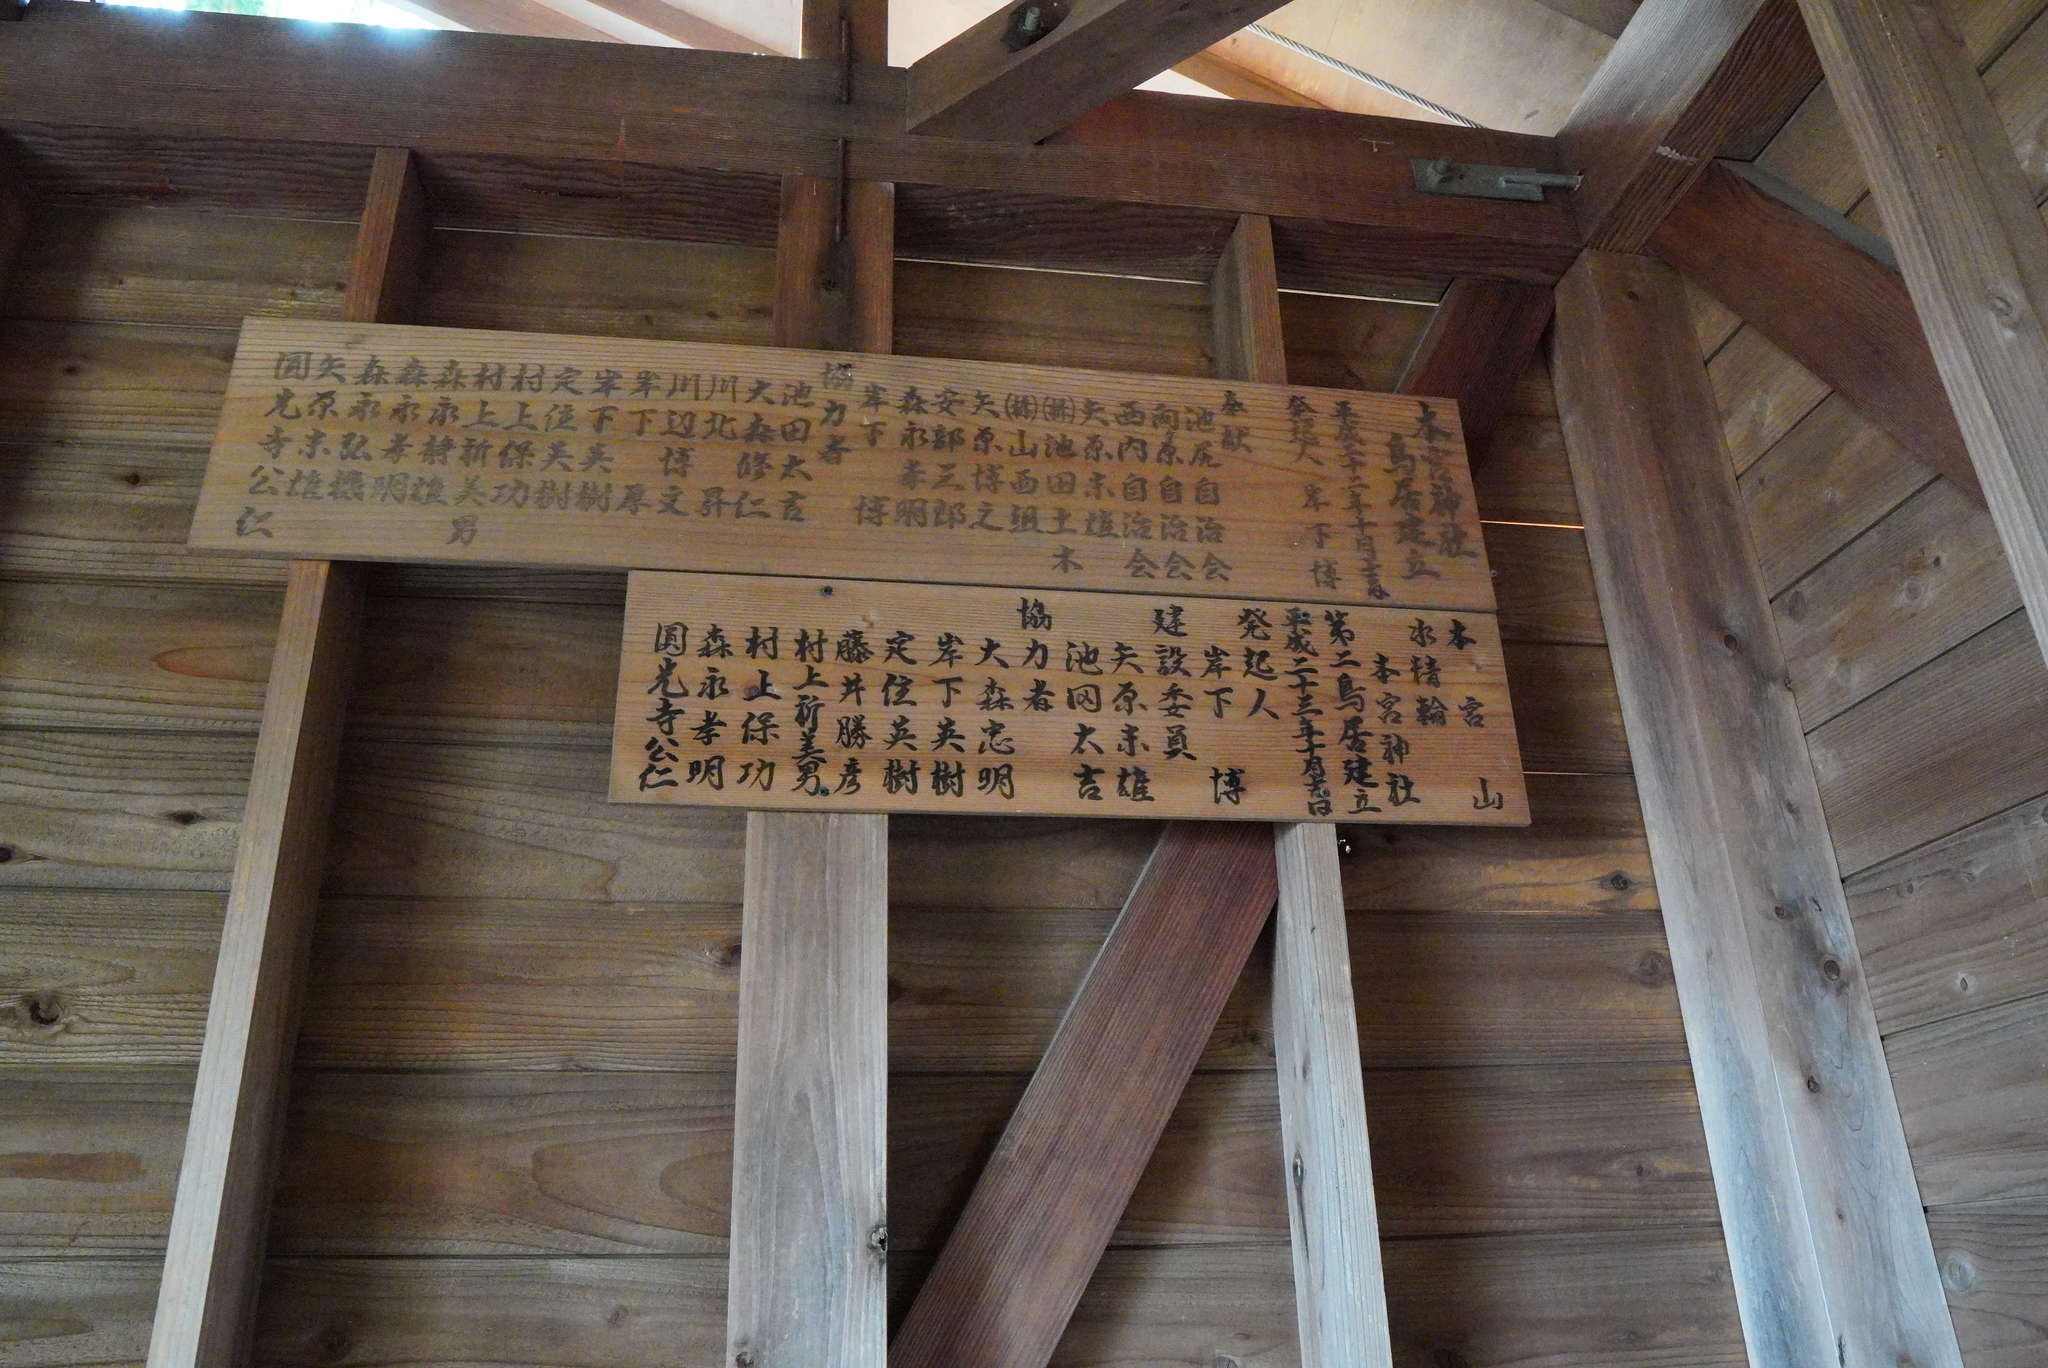 本宮神社
鳥居建立
平成二十二年十月
発起人 岸下博
奉献
池尻自治会
向原自治会
西内自治会
矢原宗雄
㈱池田土木
㈱山西組
矢原博之
安部三郎
森永孝明
岸下博
協力者
池田太吉
大森修仁
川北昇
川辺博文
岸下厚
岸下英樹
定住英樹
村上保功
村上新美男
森永静雄
森永孝明
森永弘機
矢原宗雄
圓光寺公仁
本宮山
水精輪
本宮神社
第二鳥居建立
平成二十三年十月吉日
発起人
岸下博
建設委員
矢原宗雄
池田太吉
協力者
大森忠明
岸下英樹
定住英樹
藤井勝彦
村上新美男
村上保功
森永孝明
圓光寺公仁